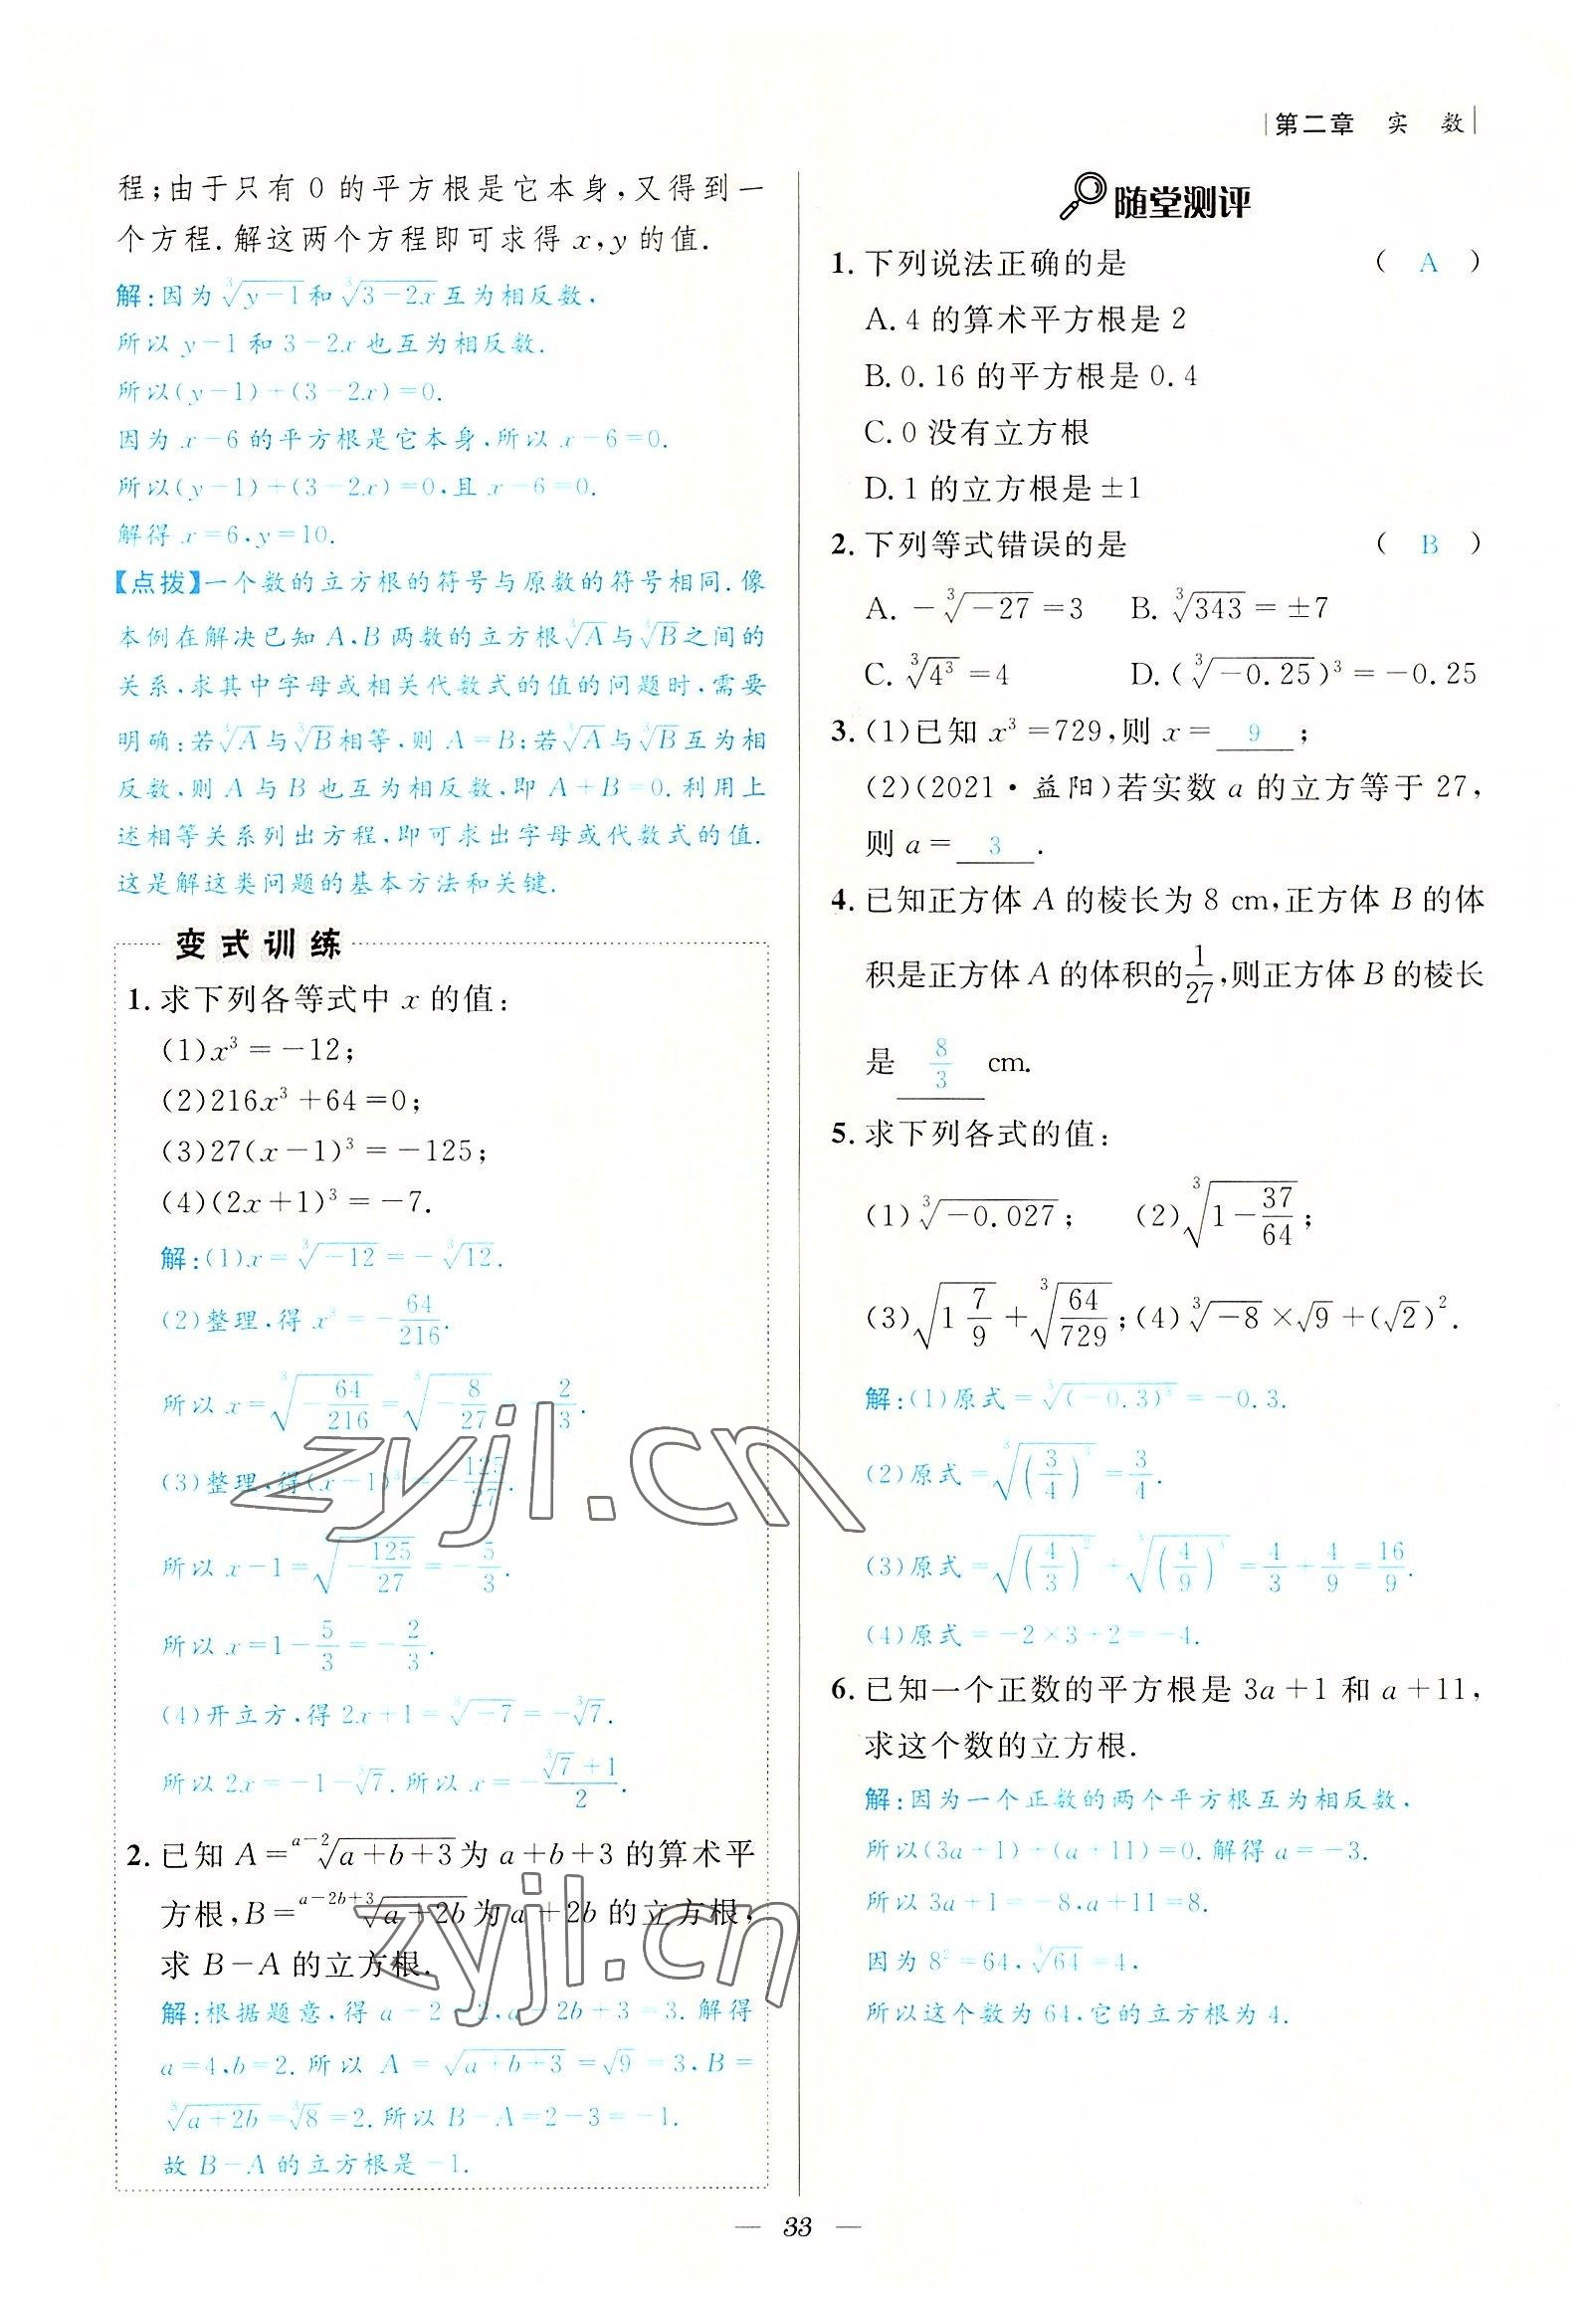 第二章 实 数
程;由于只有 0 的平方根是它本身,又得到一
个方程.解这两个方程即可求得 x,y 的值.
解:因为∛(y-1)和∛(3-2x)互为相反数,
所以 y-1 和 3-2x 也互为相反数.
所以(y-1)+(3-2x)=0.
因为 x-6 的平方根是它本身,所以 x-6=0.
所以(y-1)+(3-2x)=0,且 x-6=0.
解得 x=6,y=10.
【点拨】一个数的立方根的符号与原数的符号相同.像
本例在解决已知 A,B 两数的立方根∛A与∛B之间的
关系,求其中字母或相关代数式的值的问题时,需要
明确:若∛A与∛B相等,则 A=B;若∛A与∛B互为相
反数,则 A 与 B 也互为相反数,即 A+B=0.利用上
述相等关系列出方程,即可求出字母或代数式的值.
这是解这类问题的基本方法和关键.
变式训练
1. 求下列各等式中 x 的值:
(1)x³=-12;
(2)216x³+64=0;
(3)27(x-1)³=-125;
(4)(2x+1)³=-7.
解:(1)x=∛(-12)=-∛12.
(2)整理,得 x³=-64/216.
所以 x=∛(-64/216)=∛(-8/27)=-2/3.
(3)整理,得(x-1)³=-125/27.
所以 x-1=√(-125/27)=-5/3.
所以 x=1-5/3=-2/3.
(4)开立方,得 2x+1=∛(-7)=-∛7.
所以 2x=-1-∛7.所以 x=-(∛7+1)/2.
2. 已知 A=ᵃ⁻²√(a+b+3)为 a+b+3 的算术平
方根,B=ᵃ⁻²ᵇ⁺³√(a+2b)为 a+2b 的立方根,
求 B-A 的立方根.
解:根据题意,得 a-2=2,a-2b+3=3.解得
a=4,b=2.所以 A=√(a+b+3)=√9=3,B=
∛(a+2b)=∛8=2.所以 B-A=2-3=-1.
故 B-A 的立方根是-1.
随堂测评
1. 下列说法正确的是 ( A )
A. 4 的算术平方根是 2
B. 0.16 的平方根是 0.4
C. 0 没有立方根
D. 1 的立方根是±1
2. 下列等式错误的是 ( B )
A. -∛(-27)=3 B. ∛343=±7
C. ∛(4³)=4 D. (∛(-0.25))³=-0.25
3. (1)已知 x³=729,则 x= 9 ;
(2)(2021·益阳)若实数 a 的立方等于 27,
则 a= 3 .
4. 已知正方体 A 的棱长为 8 cm,正方体 B 的体
积是正方体 A 的体积的1/27,则正方体 B 的棱长
是 8/3 cm.
5. 求下列各式的值:
(1)∛(-0.027); (2)∛(1-37/64);
(3)√(1 7/9)+∛(64/729);(4)∛(-8)×√9+(√2)².
解:(1)原式=∛((-0.3)³)=-0.3.
(2)原式=∛((3/4)³)=3/4.
(3)原式=√((4/3)²)+∛((4/9)³)=4/3+4/9=16/9.
(4)原式=-2×3+2=-4.
6. 已知一个正数的平方根是 3a+1 和 a+11,
求这个数的立方根.
解:因为一个正数的两个平方根互为相反数,
所以(3a+1)+(a+11)=0.解得 a=-3.
所以 3a+1=-8,a+11=8.
因为 8²=64,∛64=4,
所以这个数为 64,它的立方根为 4.
zyjl.cn
zyjl.cn
— 33 —